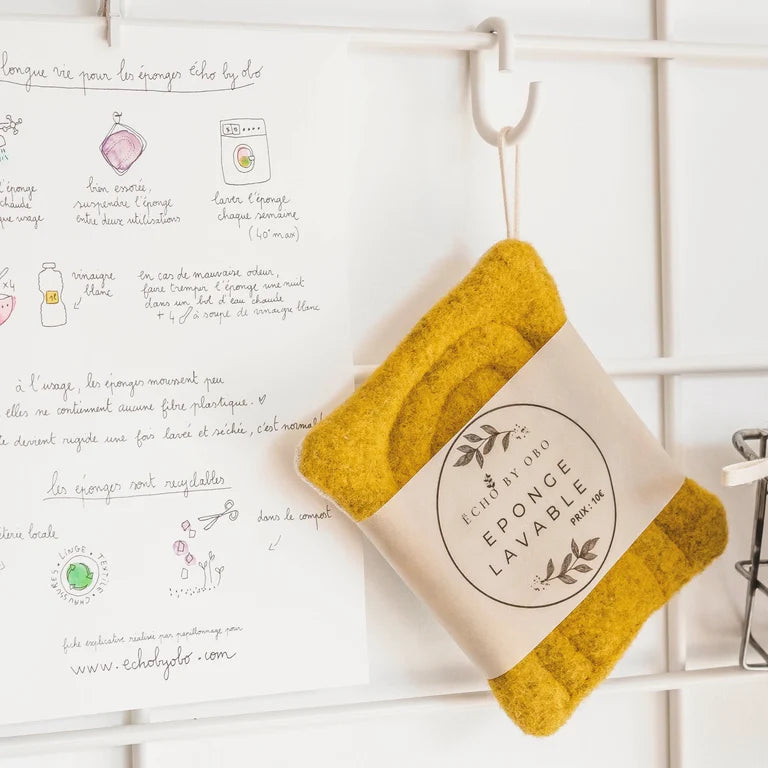 longue vie pour les éponges écho by obo
l'éponge
chaude
que usage
bien essorée,
suspendre l'éponge
entre deux utilisations
laver l'éponge
chaque semaine
(40° max)
x4
1L
vinaigre
blanc
en cas de mauvaise odeur,
faire tremper l'éponge une nuit
dans un bol d'eau chaude
+ 4 à soupe de vinaigre blanc
à l'usage, les éponges moussent peu
elles ne contiennent aucune fibre plastique. ♡
devient rigide une fois lavée et séchée, c'est normal!
les éponges sont recyclables
locale
dans le compost
LINGE • TEXTILE • CHAUSSURES
fiche explicative réalisée par papillonnage pour
www.echobyobo.com
ÉCHO BY OBO
EPONGE
LAVABLE
PRIX : 10€